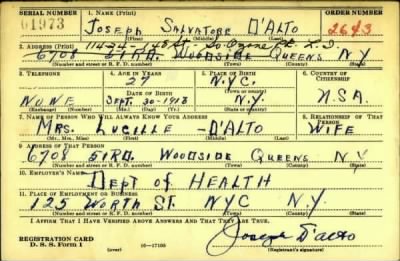 SERIAL NUMBER 1. NAME (Print) ORDER NUMBER
01973 JOSEPH SALVATORE D'ALTO 2643
(First) (Middle) (Last)
2. ADDRESS (Print) 114-24-126 St. So. Ozone Pk. L.I.
6708 51RD. WOODSIDE QUEENS N.Y
(Number and street or R. F. D. number) (Town) (County) (State)
3. TELEPHONE 4. AGE IN YEARS 5. PLACE OF BIRTH 6. COUNTRY OF CITIZENSHIP
27 N.Y.C.
DATE OF BIRTH
NONE SEPT. 30-1913 N.Y. U.S.A.
(Exchange) (Number) (Mo.) (Day) (Yr.) (State or country)
7. NAME OF PERSON WHO WILL ALWAYS KNOW YOUR ADDRESS 8. RELATIONSHIP OF THAT PERSON
MRS. LUCILLE - D'ALTO WIFE
(Mr., Mrs., Miss) (First) (Middle) (Last)
9. ADDRESS OF THAT PERSON
6708 51RD. WOODSIDE QUEENS N.Y
(Number and street or R. F. D. number) (Town) (County) (State)
10. EMPLOYER'S NAME
DEPT OF HEALTH
11. PLACE OF EMPLOYMENT OR BUSINESS
125 WORTH ST. NYC N.Y.
(Number and street or R. F. D. number) (Town) (County) (State)
I AFFIRM THAT I HAVE VERIFIED ABOVE ANSWERS AND THAT THEY ARE TRUE.
REGISTRATION CARD Joseph D'alto
D. S. S. Form 1 (over) 16-17105 (Registrant's signature)